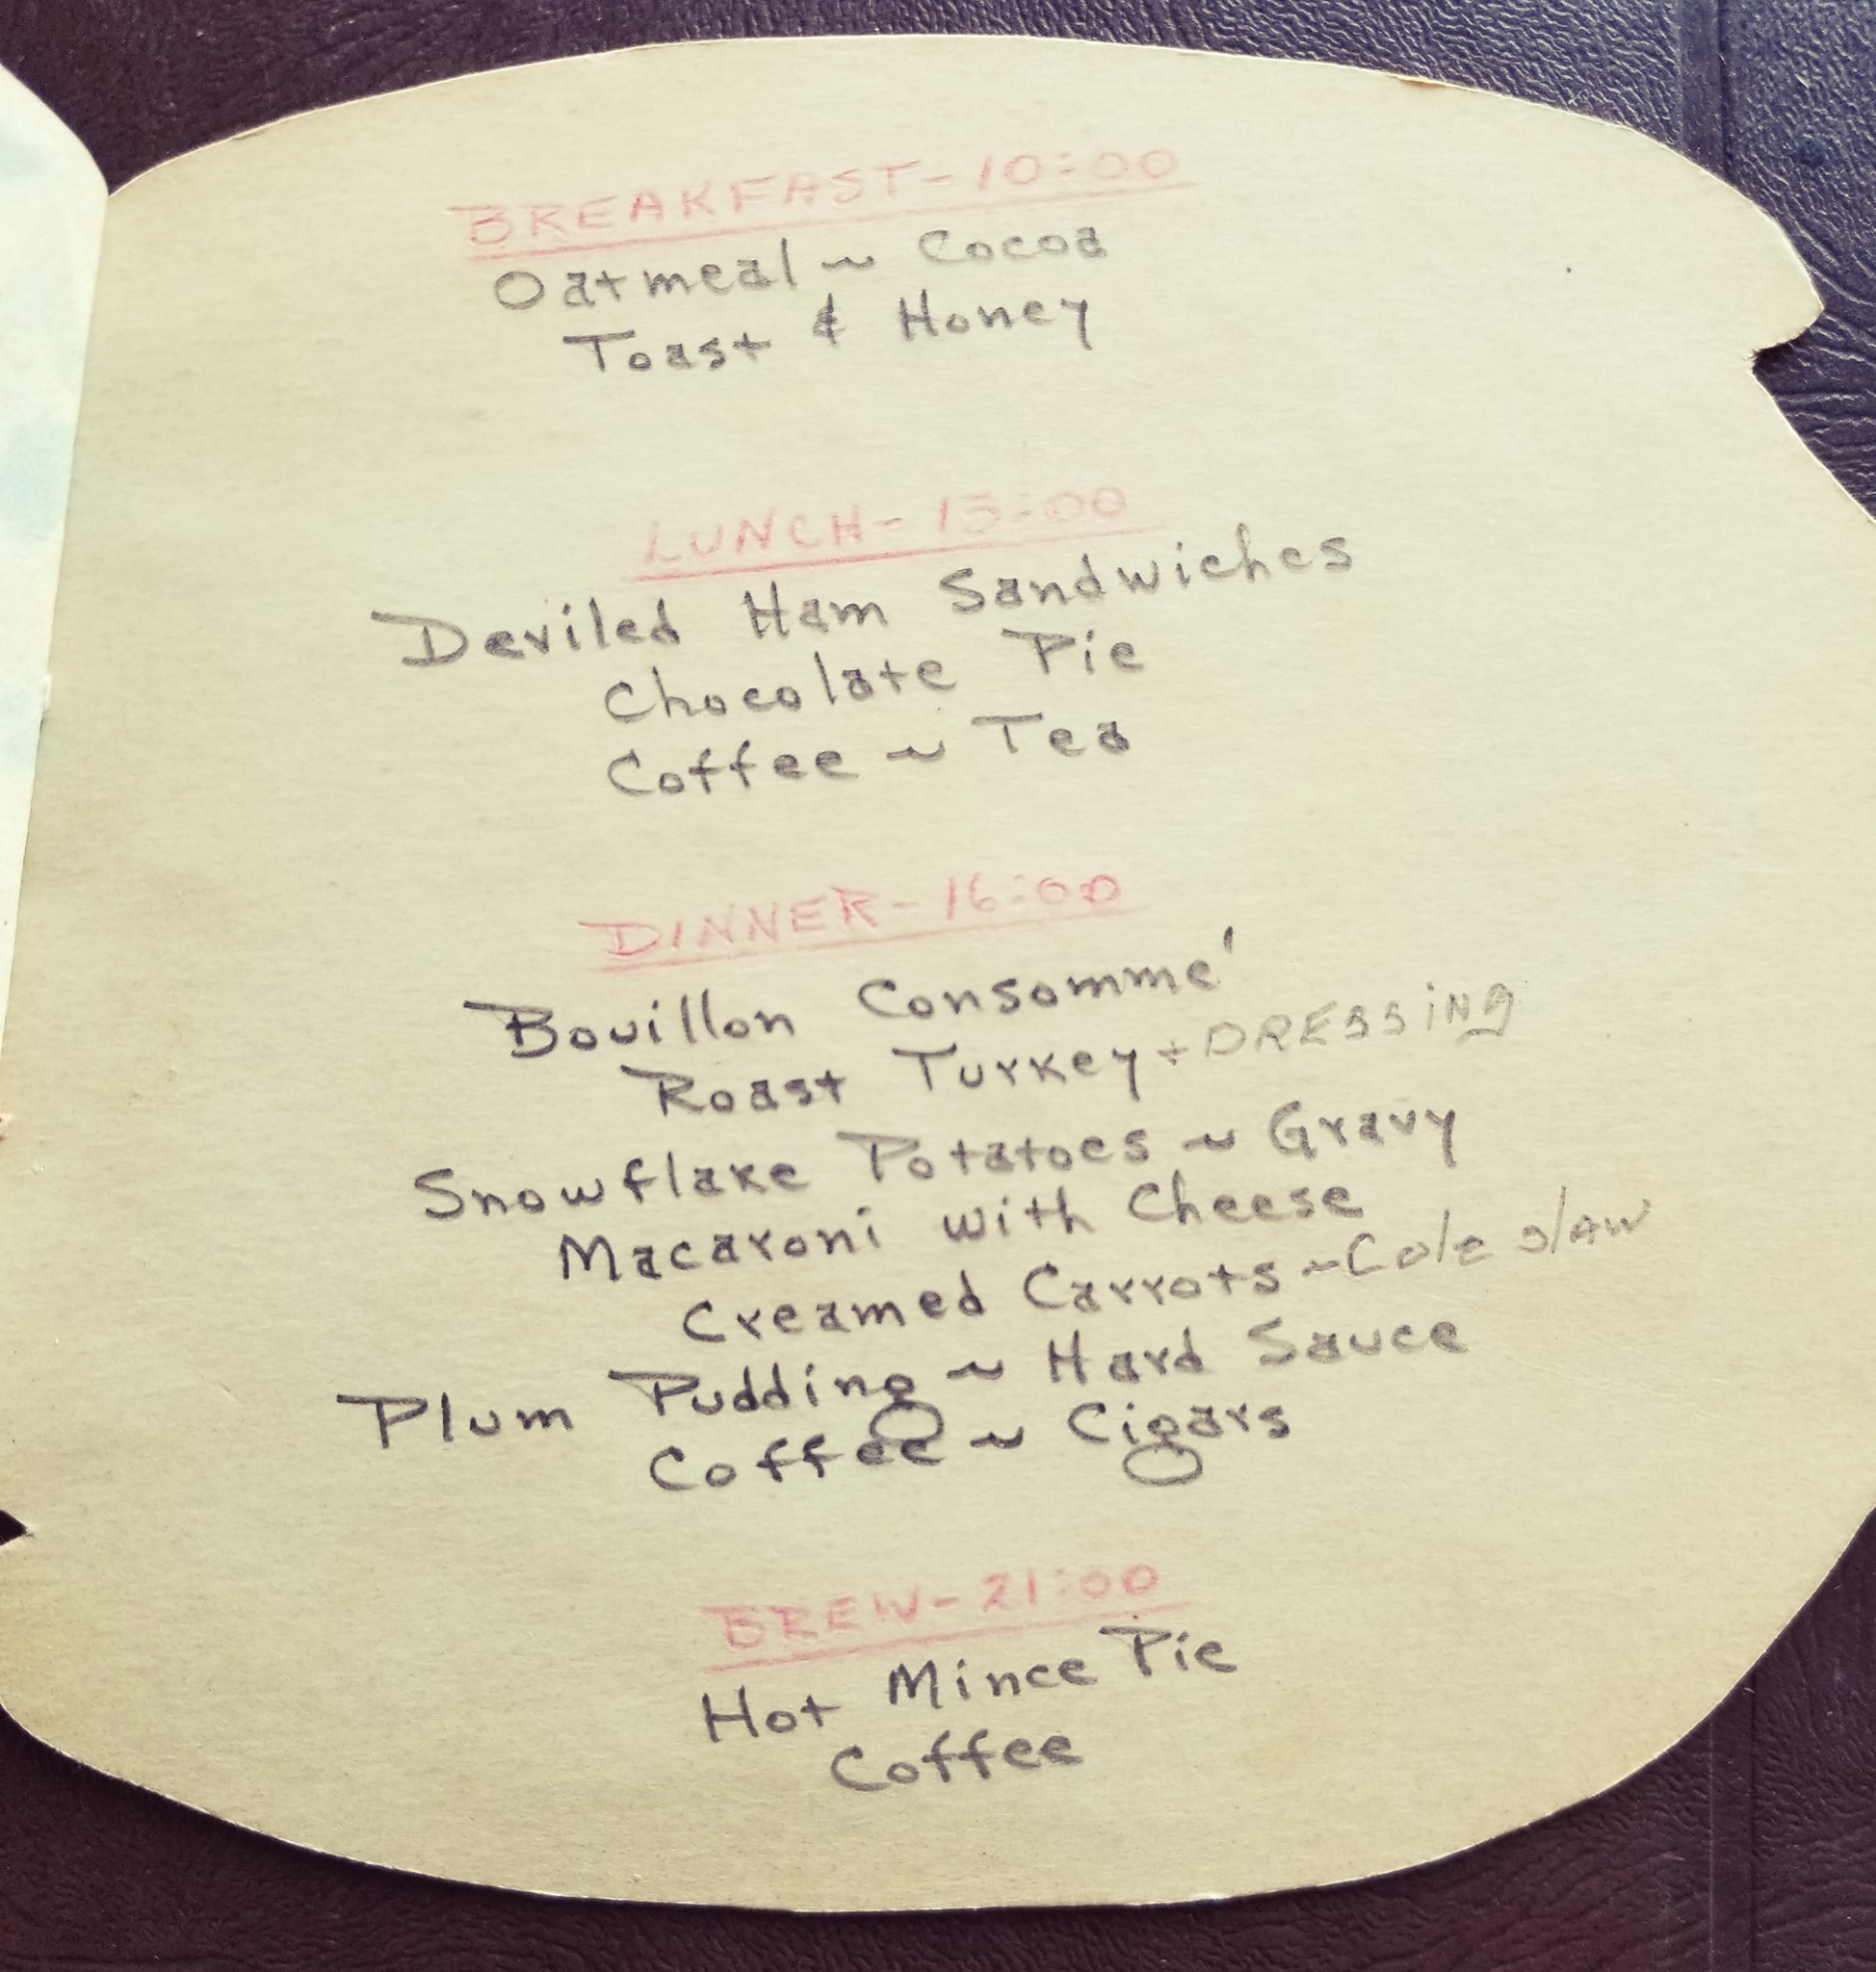 BREAKFAST-10:00
Oatmeal ~ Cocoa
Toast & Honey
LUNCH-13:00
Deviled Ham Sandwiches
Chocolate Pie
Coffee ~ Tea
DINNER-16:00
Bouillon Consommé
Roast Turkey + DRESSiNg
Snowflake Potatoes ~ Gravy
Macaroni with Cheese
Creamed Carrots ~ Cole slAW
Plum Pudding ~ Hard Sauce
Coffee ~ Cigars
BREW-21:00
Hot Mince Pie
Coffee